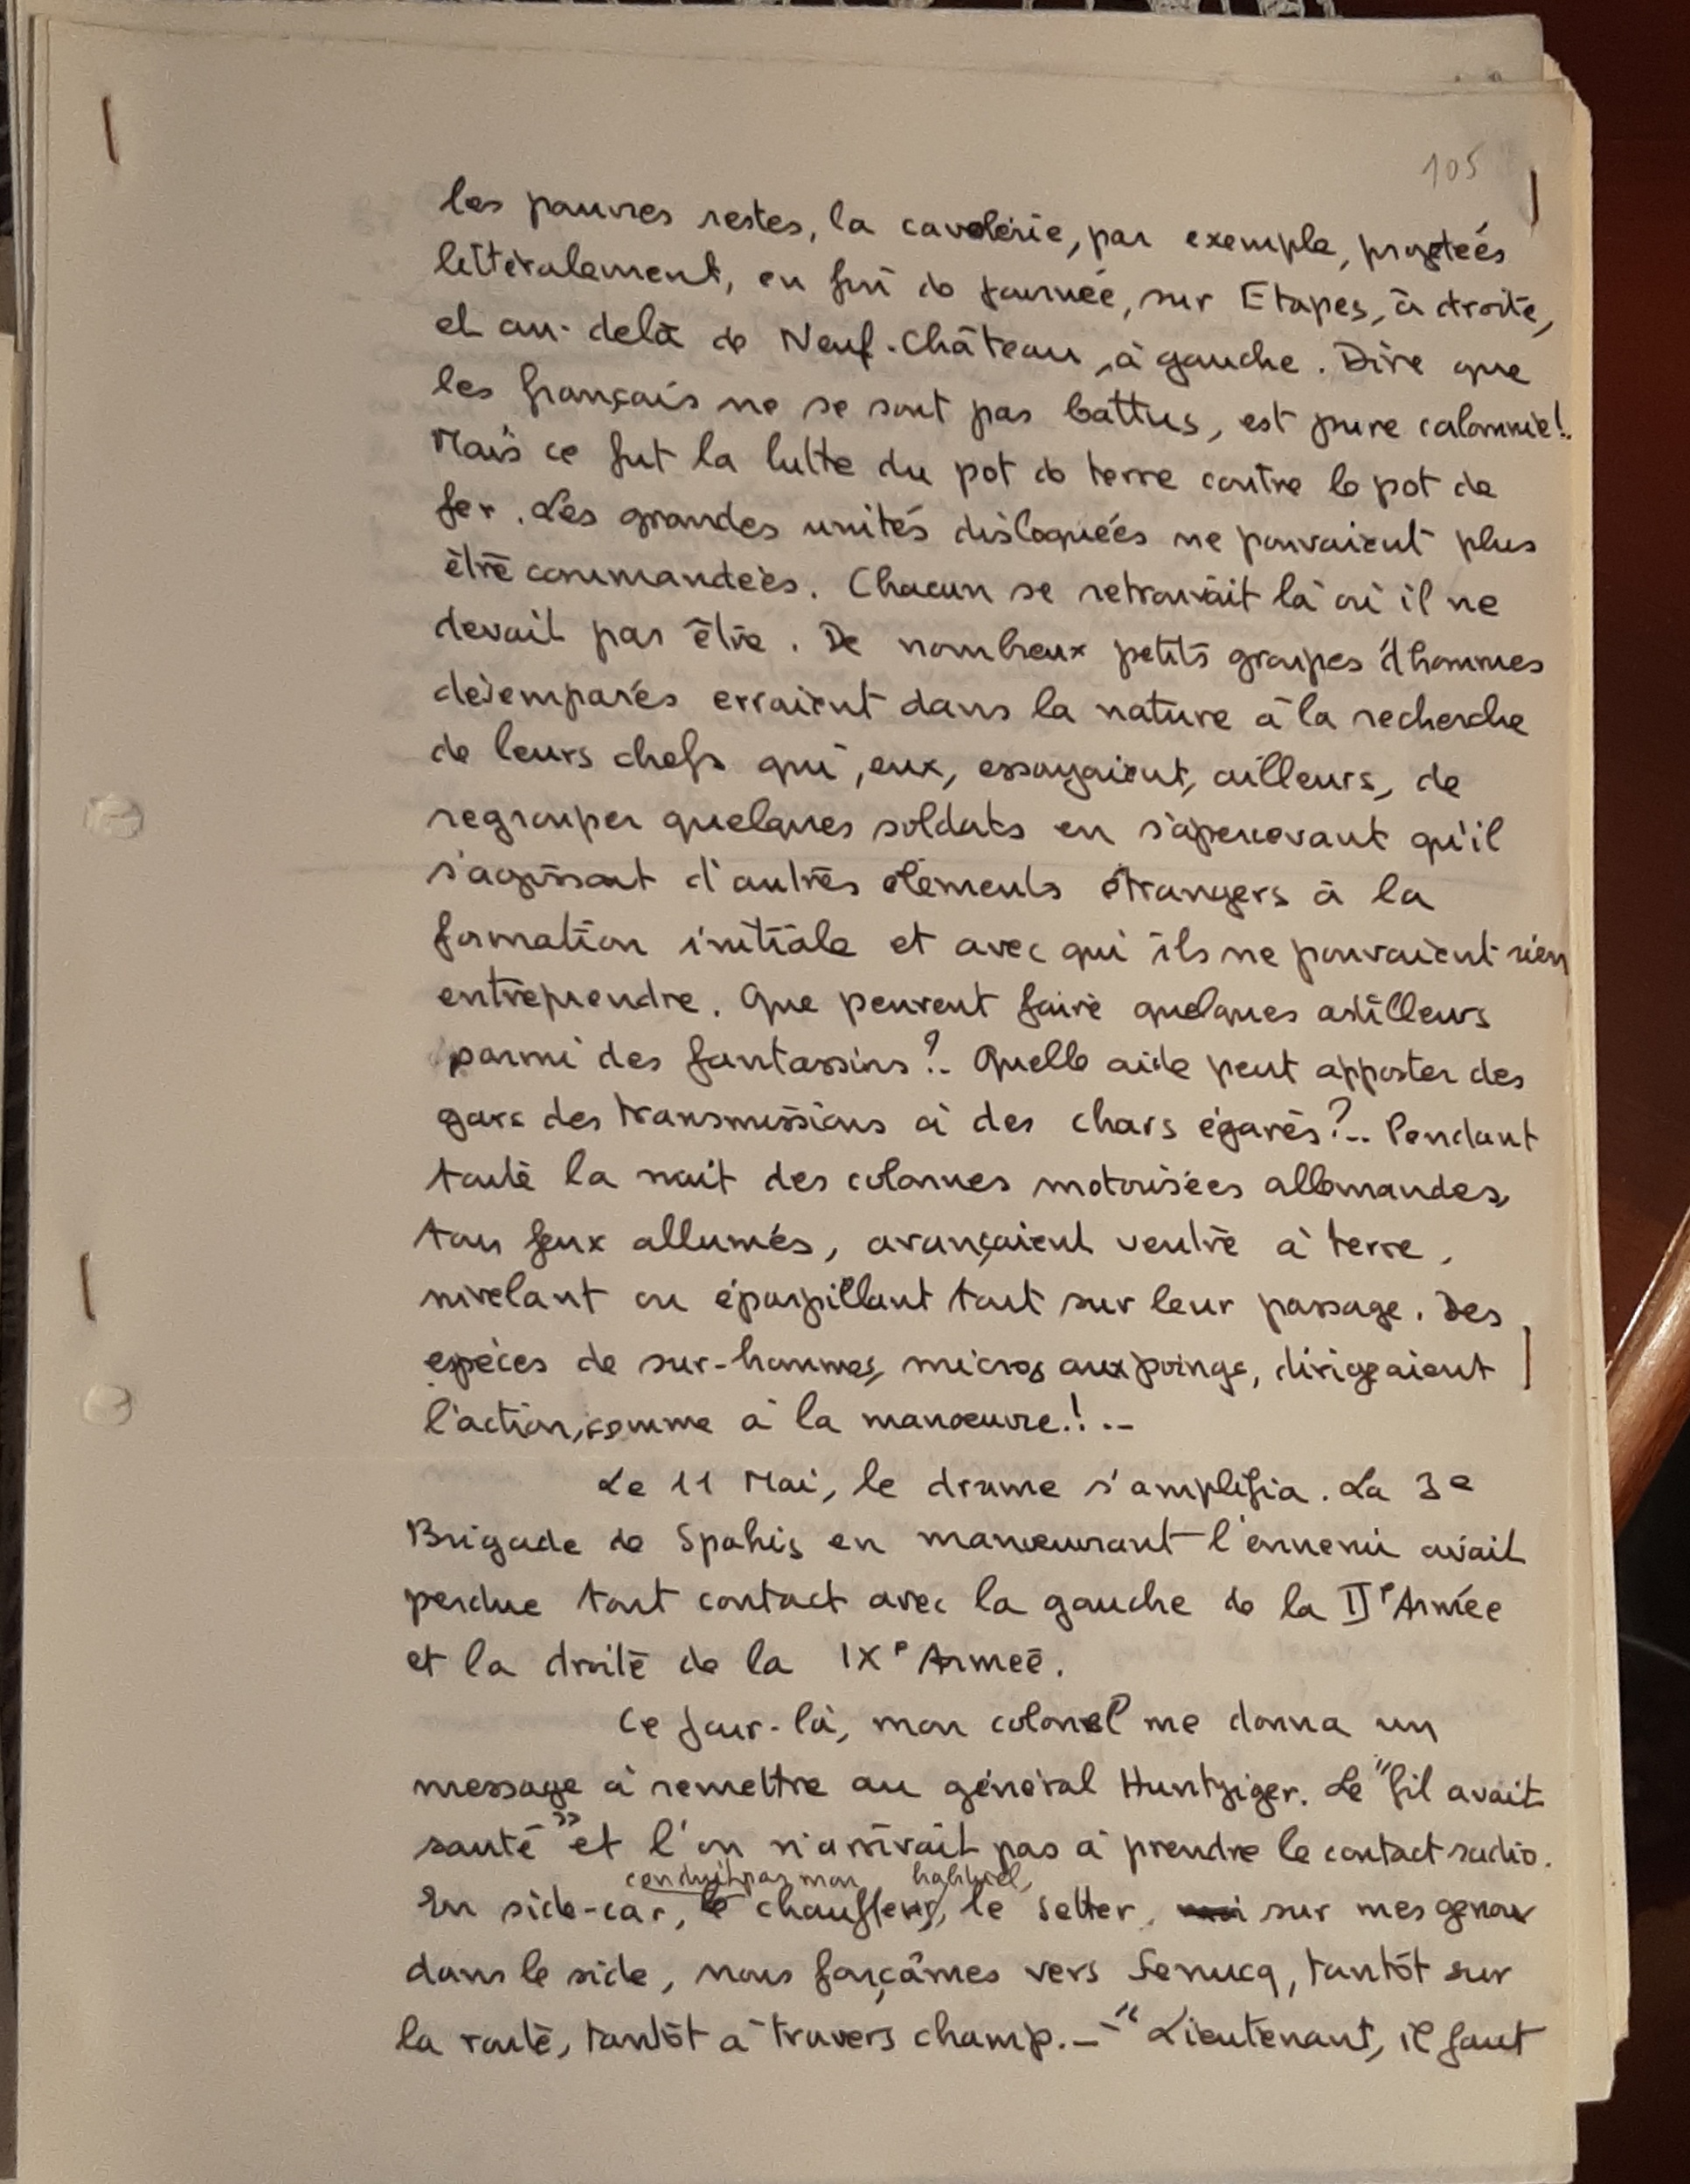 105
les pauvres restes, la cavalerie, par exemple, projetées
littéralement, en fin de journée, sur Etapes, à droite,
et au-delà de Neuf-Château, à gauche. Dire que
les français ne se sont pas battus, est pure calomnie!..
Mais ce fut la lutte du pot de terre contre le pot de
fer. Les grandes unités disloquées ne pouvaient plus
être commandées. Chacun se retrouvait là où il ne
devait pas être. De nombreux petits groupes d'hommes
désemparés erraient dans la nature à la recherche
de leurs chefs qui, eux, essayaient, ailleurs, de
regrouper quelques soldats en s'apercevant qu'il
s'agissait d'autres éléments étrangers à la
formation initiale et avec qui ils ne pouvaient rien
entreprendre. Que peuvent faire quelques artilleurs
parmi des fantassins?.. Quelle aide peut apporter des
gars des transmissions à des chars égarés?... Pendant
toute la nuit des colonnes motorisées allemandes,
tous feux allumés, avançaient ventre à terre,
nivelant ou éparpillant tout sur leur passage. Des
espèces de sur-hommes, micros aux poings, dirigeaient
l'action, comme à la manœuvre!...
Le 11 Mai, le drame s'amplifia. La 3e
Brigade de Spahis en manœuvrant l'ennemi avait
perdue tout contact avec la gauche de la IIe Armée
et la droite de la IXe Armée.
Ce jour-là, mon colonel me donna un
message à remettre au général Huntziger. Le "fil avait
sauté" et l'on n'arrivait pas à prendre le contact radio.
conduit par mon habituel,
En side-car, le chauffeur, le setter, sur mes genoux
dans le side, nous fonçâmes vers Senucq, tantôt sur
la route, tantôt à travers champ. — "Lieutenant, il faut